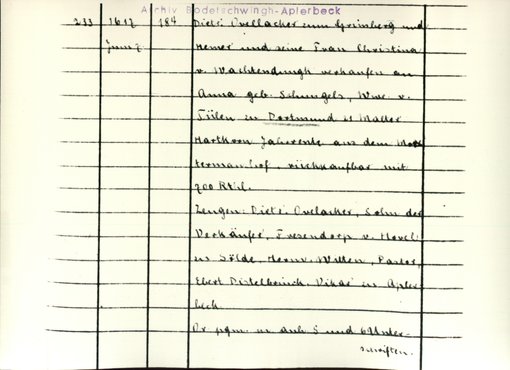 Archiv Bodelschwingh-Aplerbeck
233 1617 184 Dietr. Ovelacker zum Grimberg und
Juni 7 Nemer und seine Frau Christina
v. Wachtendungh verkaufen an
Anna geb. Schungels, Wwe. v.
Tülen zu Dortmund 11 Malter
Hartkorn Jahrrente aus dem
termanhof rückkaufbar mit
700 Rthl.
Zeugen: Dietr. Ovelacker, Sohn der
Verkäufer, Fresendorp v. Hövel
zu Sölde, Herm. Witten, Pastor,
Ebert Distelbrinck, Vikar zu Apler-
beck.
Or. pgm. m. anh. S und 6 Unter-
schriften.